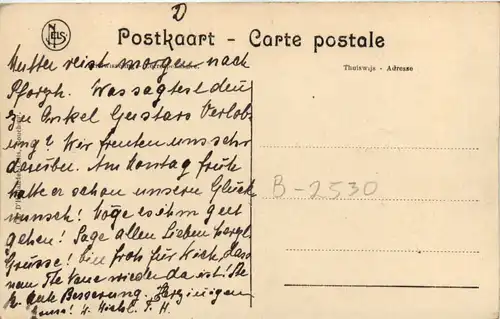 D
NELS
Postkaart - Carte postale
Thuiswijs - Adresse
B-2530
Mutter reist morgen nach
Pforzh. Was sagtest denn
zu Onkel Gustavs Verlob
ung? Wir freuten uns sehr
darüber. Am Montag früh
hatte er schon unseren Glück
wunsch! Möge es ihm gut
gehen! Sage allen Lieben herzl.
Grüsse! Bin froh für Dich, dass
nun Tte wieder da ist!
gute Besserung. Herzinnigen